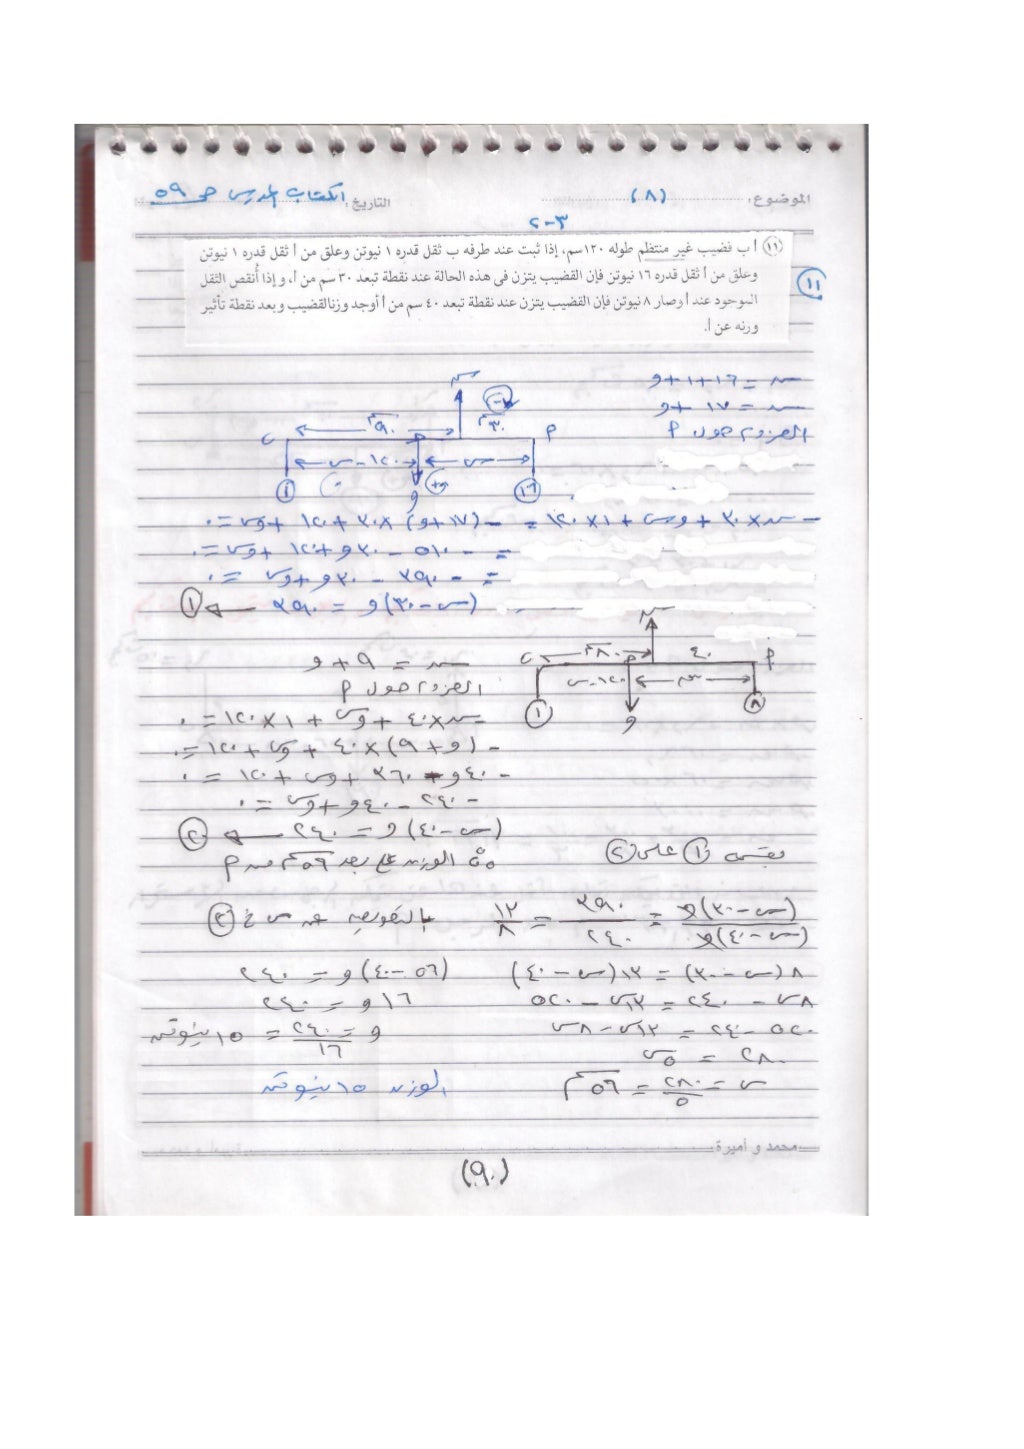 الموضوع: (٨) التاريخ: الكتاب المدرسى ص ٥٩
٢-٣
(١١) أ ب قضيب غير منتظم طوله ١٢٠سم، إذا ثبت عند طرفه ب ثقل قدره ١ نيوتن وعلق من أ ثقل قدره ١ نيوتن
وعلق من أ ثقل قدره ١٦ نيوتن فإن القضيب يتزن فى هذه الحالة عند نقطة تبعد ٣٠ سم من أ، وإذا أُنقص الثقل
الموجود عند أ وصار ٨ نيوتن فإن القضيب يتزن عند نقطة تبعد ٤٠ سم من أ أوجد وزنالقضيب وبعد نقطة تأثير
ورنه عن أ.
١١
س = ١٦+١+و
س = ١٧ + و
العزوم حول م
س ٩٠سم ٣٠سم
ب م
١٢٠-س س
١ و ١٦
- س×٣٠ + وس + ١×١٢٠ = - (١٧+و)×٣٠ + ١٢٠ + وس = ٠
= - ٥١٠ - ٣٠و + ١٢٠ + وس = ٠
= - ٣٩٠ - ٣٠و + وس = ٠
(س-٣٠)و = ٣٩٠ ← (١)
س
ب ٨٠سم ٤٠ م
١٢٠-س س
١ و ٨
س = ٩ + و
العزوم حول م
- س×٤٠ + وس + ١×١٢٠ = ٠
- (و+٩)×٤٠ + وس + ١٢٠ = ٠
- ٤٠و - ٣٦٠ + وس + ١٢٠ = ٠
- ٢٤٠ - ٤٠و + وس = ٠
(س-٤٠)و = ٢٤٠ ← (٢)
بقسمة (١) على (٢)
∴ الوزن على بعد ٥٦سم من م
(س-٣٠)و / (س-٤٠)و = ٣٩٠ / ٢٤٠ = ١٣ / ٨
بالتعويض عن س فى (٢)
٨(س-٣٠) = ١٣(س-٤٠)
(٥٦-٤٠)و = ٢٤٠
٨س - ٢٤٠ = ١٣س - ٥٢٠
١٦و = ٢٤٠
٥٢٠ - ٢٤٠ = ١٣س - ٨س
و = ٢٤٠ / ١٦ = ١٥ نيوتن
٢٨٠ = ٥س
س = ٢٨٠ / ٥ = ٥٦سم
الوزن ١٥ نيوتن
محمد و أميرة
(٩٠)